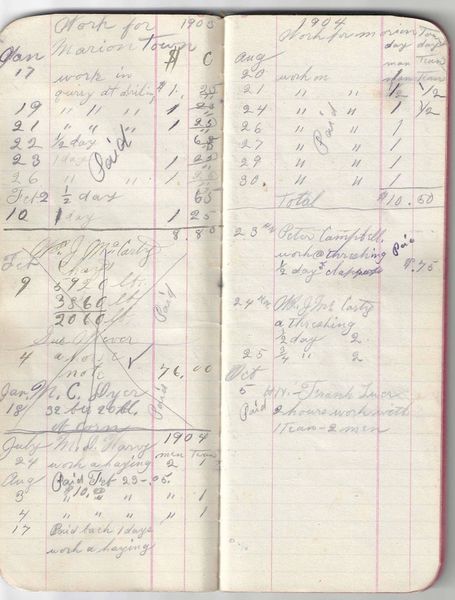 Work for 1903
Marion Town $ C
Jan
17 work in
$1. 25
19 " " " 1 25
21 " " " 1 25
22 1/2 day 63
23 1 day 1 25
26 " " 1 25
Paid
Feb 2 1/2 day 63
10 1 day 1 25
8.80
Wm. J. McCarty
Feb
9 5920 lb.
3860 lb
2060 lb.
Paid
4 above
note 76.00
Jan, M. C. Dyer
18 32 bu 20 lb.
of corn
Paid
July M. D. Harvy 1904
men Team
24 work a haying 2 1
Aug Paid Feb 23-05.
$10.00
3 " " " 1
4 " " " 1
17 Paid back 1 days
work a haying
1904
Work for Marion Town
day days
man Team
Aug
20 work on
21 " " 1/2 1/2
24 " " 1 1/2
26 " " 1
27 " " 1
29 " " 1
30. " " 1
Paid
Total $10.50
23 Peter Campbell Paid
work @ threshing
1/2 day $.75
24 Wm. J. McCarty
a threshing
1/2 day 2.
25 3/4 " 2
Oct
5 Frank
Paid 2 hours work with
1 Team - 2 men